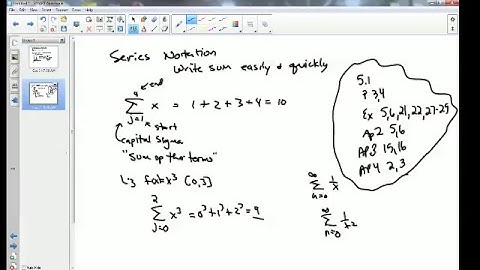 Series Notation
Write sum easily & quickly
4 ← end
∑ x = 1 + 2 + 3 + 4 = 10
j=1 ← start
capital sigma
"Sum of the terms"
f(x)=x³ [0,3]
2
∑ x³ = 0³ + 1³ + 2³ = 9
j=0
5.1
P 3,4
Ex 5,6,21,22,27-29
AP2 5,6
AP3 15,16
AP4 2,3
∞
∑ 1/x
n=0
∞
∑ 1/x2
n=0